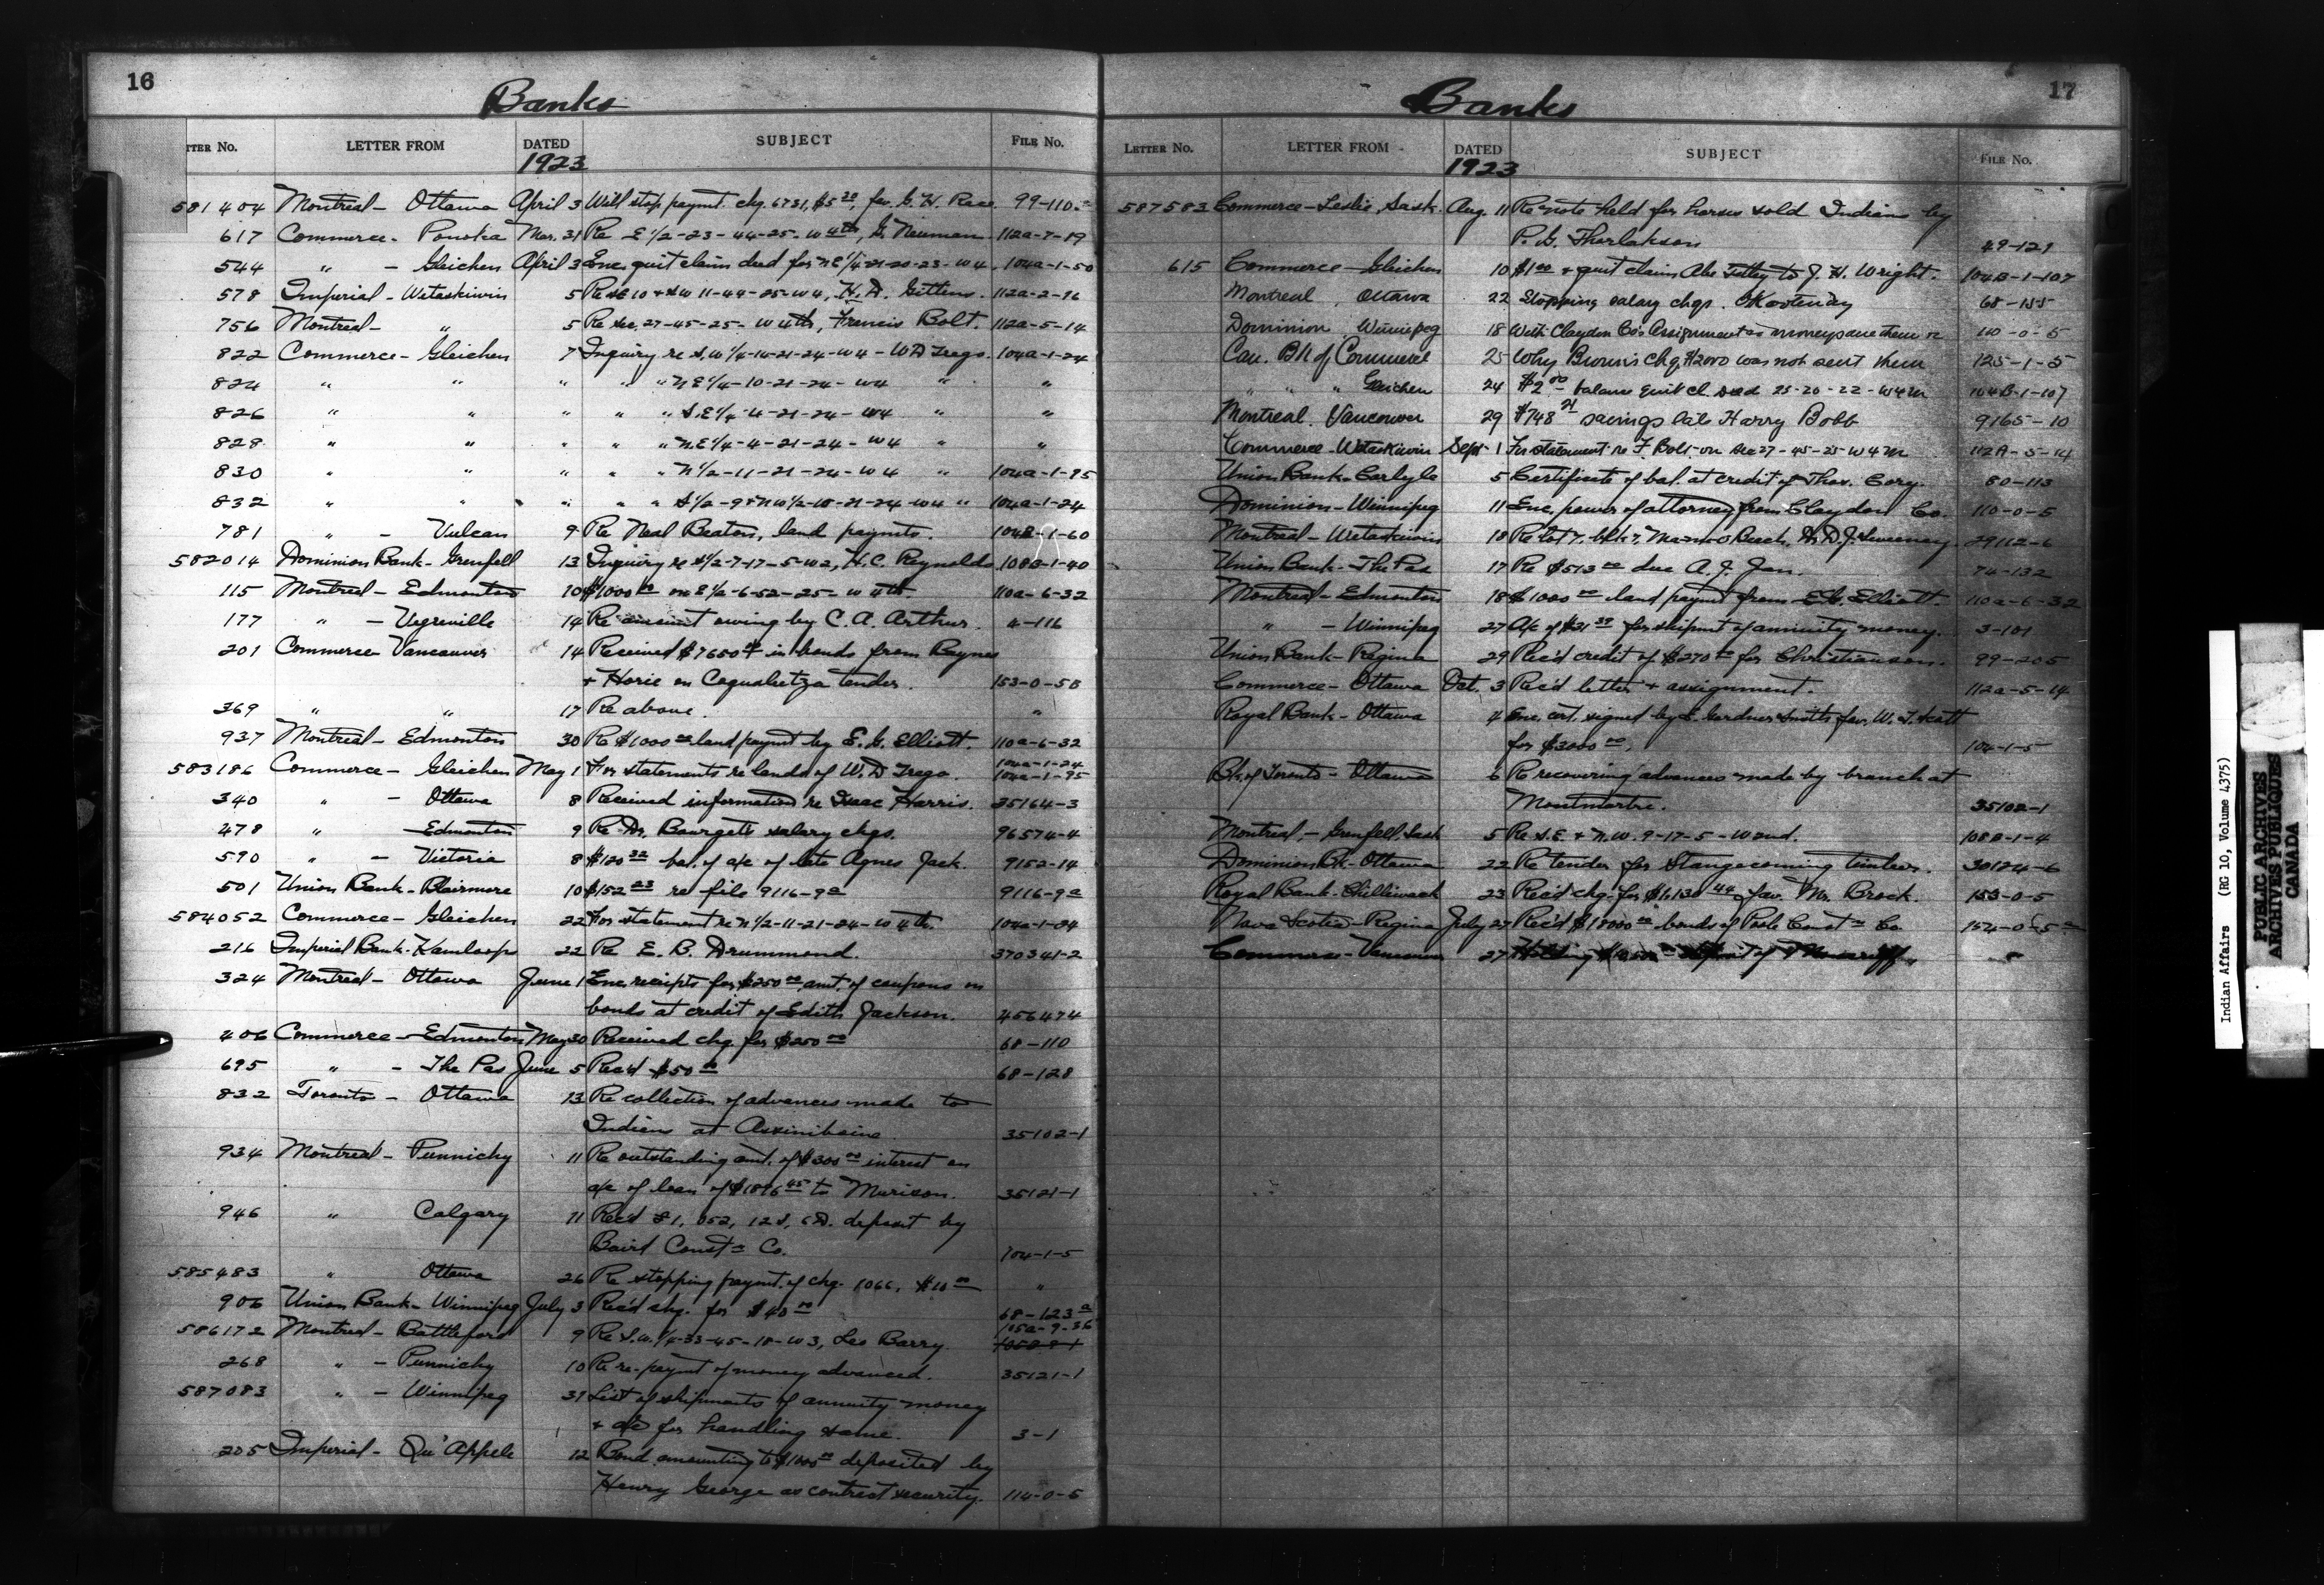 16
Banks
TTER No. LETTER FROM DATED SUBJECT FILE No.
1923
581404 Montreal - Ottawa April 3 Will stop paymt. chq. 6731, $5 20, fav. G. H. Race 99-110
617 Commerce - Ponoka Mar. 31 Re E 1/2-23-44-25-W 4th, G. Neuman 112a-7-19
544 " - Gleichen April 3 Enc. quit claim deed for NE 1/4-21-20-23-W4 104a-1-50
578 Imperial - Wetaskiwin 5 Re SE 10 & SW 11-44-25-W4, H. D. Gittens. 112a-2-16
756 Montreal - " 5 Re Sec. 27-45-25-W 4th, Francis Bolt. 112a-5-14
822 Commerce - Gleichen 7 Inquiry re S.W 1/4-14-21-24-W4 - W D Trego. 104a-1-24
824 " " " " " N E 1/4-10-21-24-W4 " "
826 " " " " " S.E 1/4-4-21-24-W4 " "
828 " " " " " N.E 1/4-4-21-24-W4 " "
830 " " " " " N 1/2-11-21-24-W4 " 104a-1-95
832 " " " " " S 1/2-9 & NW 1/2-10-21-24-W4 " 104a-1-24
781 " - Vulcan 9 Re Neal Beaton, land paymts. 104B-1-60
582014 Dominion Bank - Grenfell 13 Inquiry re S 1/2-7-17-5-W2, H. C. Reynolds 108B-1-40
115 Montreal - Edmonton 10 $1000 00 on E 1/2-6-52-25-W 4th. 110a-6-32
177 " - Vegreville 14 Re amount owing by C. A. Arthur. 4-116
201 Commerce - Vancouver 14 Received $7650 00 in bonds from Baynes
& Horie on Coqualeetza tender. 153-0-5B
369 " " 17 Re above. "
937 Montreal - Edmonton 30 Re $1000 00 land paymt by E. G. Elliott. 110a-6-32
104a-1-24
583186 Commerce - Gleichen May 1 For statements re lands of W. D Trego. 104a-1-95
340 " - Ottawa 8 Received information re Isaac Harris. 35164-3
478 " - Edmonton 9 Re Dr. Bourget's salary chqs. 96574-4
590 " - Victoria 8 $120 32 bal. of a/c of late Agnes Jack. 9152-14
501 Union Bank - Blairmore 10 $152 23 re file 9116-9a 9116-9a
584052 Commerce - Gleichen 22 For statement re N 1/2-11-21-24-W 4th. 104a-1-24
216 Imperial Bank - Kamloops 22 Re E. B. Drummond. 370341-2
324 Montreal - Ottawa June 1 Enc. receipts for $250 00 amt. of coupons on
bonds at credit of Edith Jackson. 456474
406 Commerce - Edmonton May 30 Received chq. for $250 00 68-110
695 " - The Pas June 5 Rec'd $50 00 68-128
832 Toronto - Ottawa 13 Re collection of advances made to
Indians at Assiniboine. 35102-1
934 Montreal - Punnichy 11 Re outstanding amt. of $300 00 interest on
a/c of loan of $1896 45 to Murison. 35121-1
946 " Calgary 11 Rec'd £1, 052, 12 S, 6 D. deposit by
Baird Const'n Co. 104-1-5
585483 " Ottawa 26 Re stopping paymt. of chq. 1066, $10 00 "
906 Union Bank - Winnipeg July 3 Rec'd chq. for $40 00 68-123a
105a-9-36
586172 Montreal - Battleford 9 Re S.W. 1/4-33-45-18-W3, Les Barry
268 " - Punnichy 10 Re re-paymt of money advanced. 35121-1
587083 " - Winnipeg 31 List of shipments of annuity money
& a/c for handling same. 3-1
205 Imperial - Qu'Appele 12 Bond amounting to $1000 00 deposited by
Henry George as contract security. 114-0-5
17
Banks
LETTER No. LETTER FROM DATED SUBJECT FILE No.
1923
587583 Commerce - Leslie, Sask. Aug. 11 Re note held for horses sold Indians by
P. G. Thorlakson 49-121
615 Commerce - Gleichen 10 $1 00 & quit claim Abe Tetley to J. H. Wright. 104B-1-107
Montreal, Ottawa 22 Stopping salary chqs. Kootenay 68-155
Dominion Winnipeg 18 With Claydon Co's Assignment as moneys due them re 110-0-5
Can. Bk of Commerce 25 Why Brown's chq. $2000 was not sent them 125-1-5
" " " Gleichen 24 $2 00 balance quit cl. deed 25-20-22-W4M 104B-1-107
Montreal. Vancouver 29 $748 21 savings late Harry Bobb 9165-10
Commerce - Wetaskiwin Sept. 1 For statement re F. Bolt on Sec 27-45-25 W 4 M 112A-5-14
Union Bank - Carlyle 5 Certificate of bal. at credit of Thos. Cory. 80-113
Dominion - Winnipeg 11 Enc. power of attorney from Claydon Co. 110-0-5
Montreal - Wetaskiwin 18 Re Lot 7, blk 7, Ma-me-O Beach, D. J. Sweeney 29112-6
Union Bank - The Pas 17 Re $513 00 due A. J. Jan. 74-132
Montreal - Edmonton 18 $1000 00 land paymt from E. G. Elliott. 110a-6-32
" - Winnipeg 27 A/c of $31 39 for shipmt of annuity money. 3-101
Union Bank - Regina 29 Rec'd credit of $270 00 for Christianson. 99-205
Commerce - Ottawa Oct. 3 Rec'd letter & assignment. 112a-5-14
Royal Bank - Ottawa 4 Enc. cert. signed by L. Gardner Smith fav. W. T. Scott
for $3000 00. 104-1-5
Bk. of Toronto - Ottawa 6 Re recovering advances made by branch at
Montmartre. 35102-1
Montreal, - Grenfell, Sask 5 Re S.E. & N.W. 9-17-5-W 2nd. 108B-1-4
Dominion Bk - Ottawa 22 Re tender for Stangecoming timber. 30124-6
Royal Bank - Chilliwack 23 Rec'd chq. for $1,130 44 fav. Mr. Brock. 153-0-5
Nova Scotia - Regina July 27 Rec'd $18000 00 bonds of Poole Const'n Co. 152-0-5
Commerce - Vancouver 27 Holding
Indian Affairs (RG 10, Volume 4375)
PUBLIC ARCHIVES
ARCHIVES PUBLIQUES
CANADA